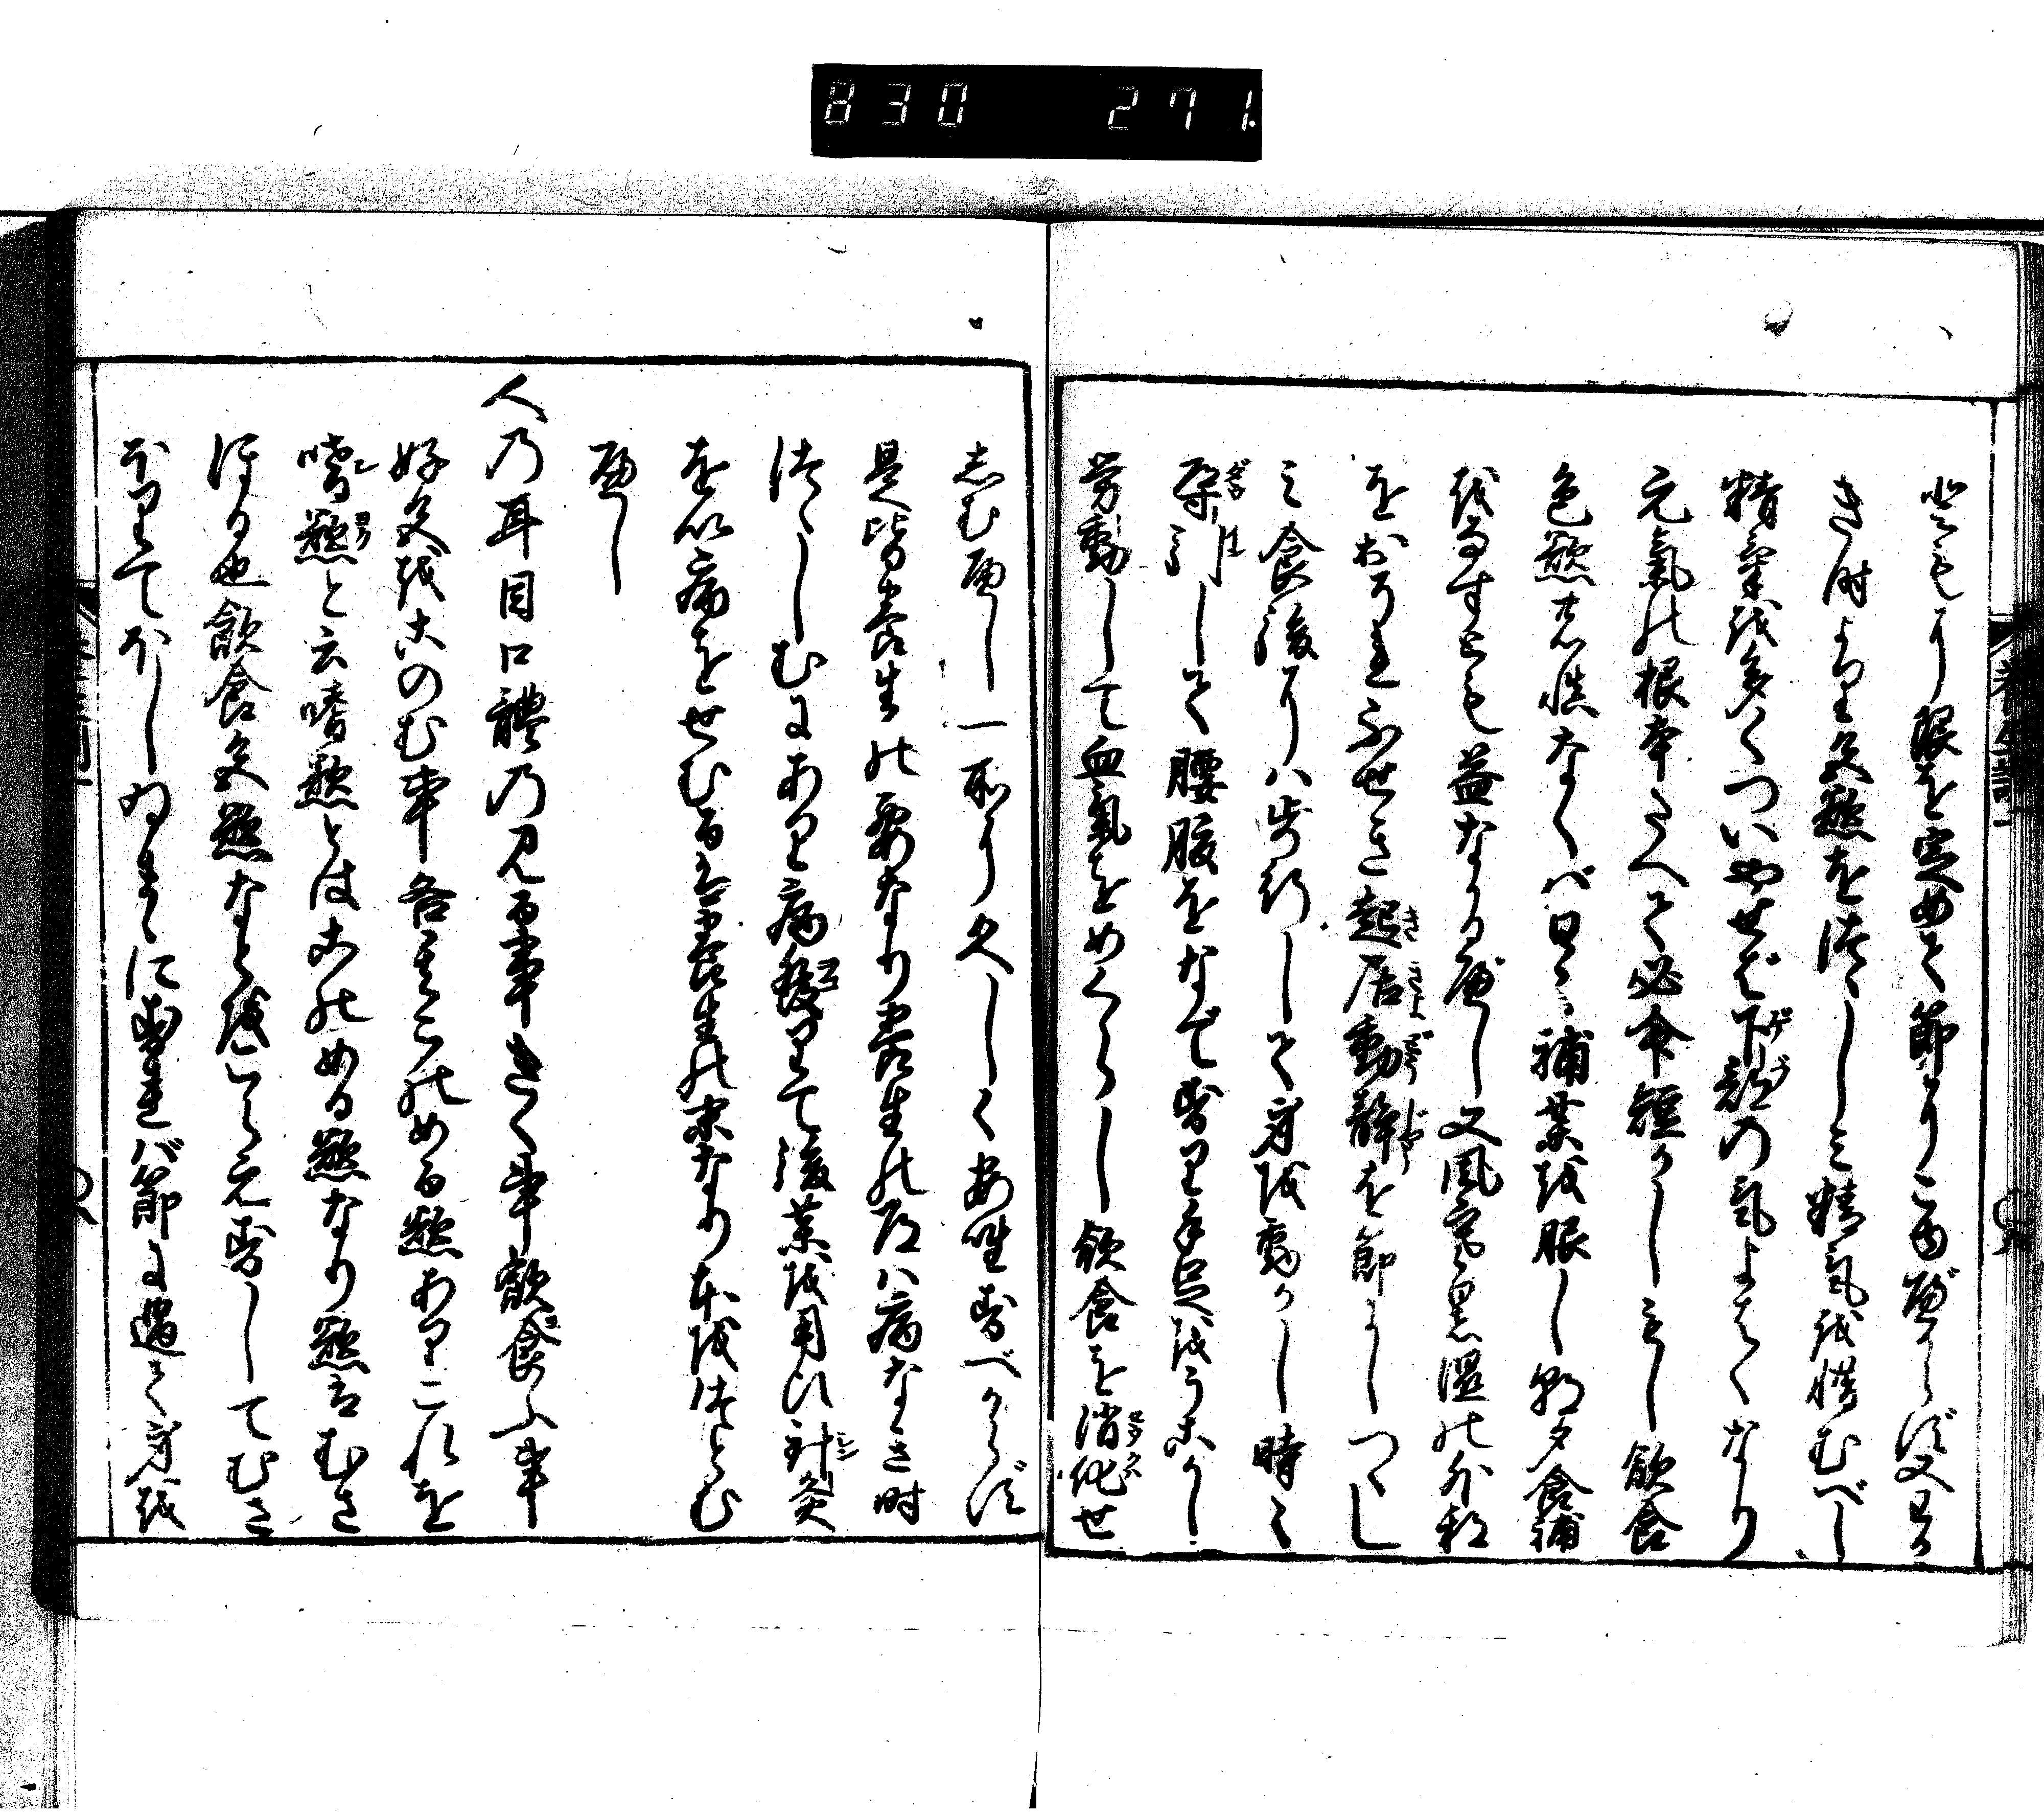 ともに限を定めて節にこゆべからず又わか
き時より色慾をつゝしみ精氣を惜むべし
精氣を多くついやせば下部の氣よはくなり
元氣の根本たへて必命短かしもし飲食
色慾の慎なくば日々補薬を服し朝夕食補
をなすとも益なかるべし又風寒暑湿の外邪
をおそれふせぎ起居動静を節にしつゝし
み食後には歩行して身を動かし時々
導引して腰腹をなですり手足をうごかし
労動して血氣をめぐらし飲食を消化せ
しむべし一所に久しく安坐すべからず
是皆養生の要なり養生の道は病なき時
つゝしむにあり病發りて後薬を用い針灸
を以病をせむるは養生の末なり本をつとむ
べし
人の耳目口體の見る事きく事飲食ふ事
好色をこのむ事各其このめる慾ありこれを
嗜慾と云嗜慾とはこのめる慾なり慾はむさ
ぼる也飲食色慾などをこらえずしてむさ
ぼりてほしゐまゝにすれば節に過て身を
830 271